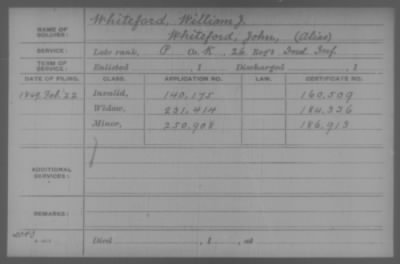 NAME OF SOLDIER: Whiteford, William J.
Whiteford, John, (Alias)
SERVICE: Late rank, P Co. K, 26 Reg't Ind. Inf.
TERM OF SERVICE: Enlisted , 1 Discharged , 1
DATE OF FILING. CLASS. APPLICATION NO. LAW. CERTIFICATE NO.
1869 Feb. 22 Invalid, 140,175 160,509
Widow, 231,414 184,336
Minor, 250,908 186,913
ADDITIONAL SERVICES:
REMARKS:
Died , 1 , at